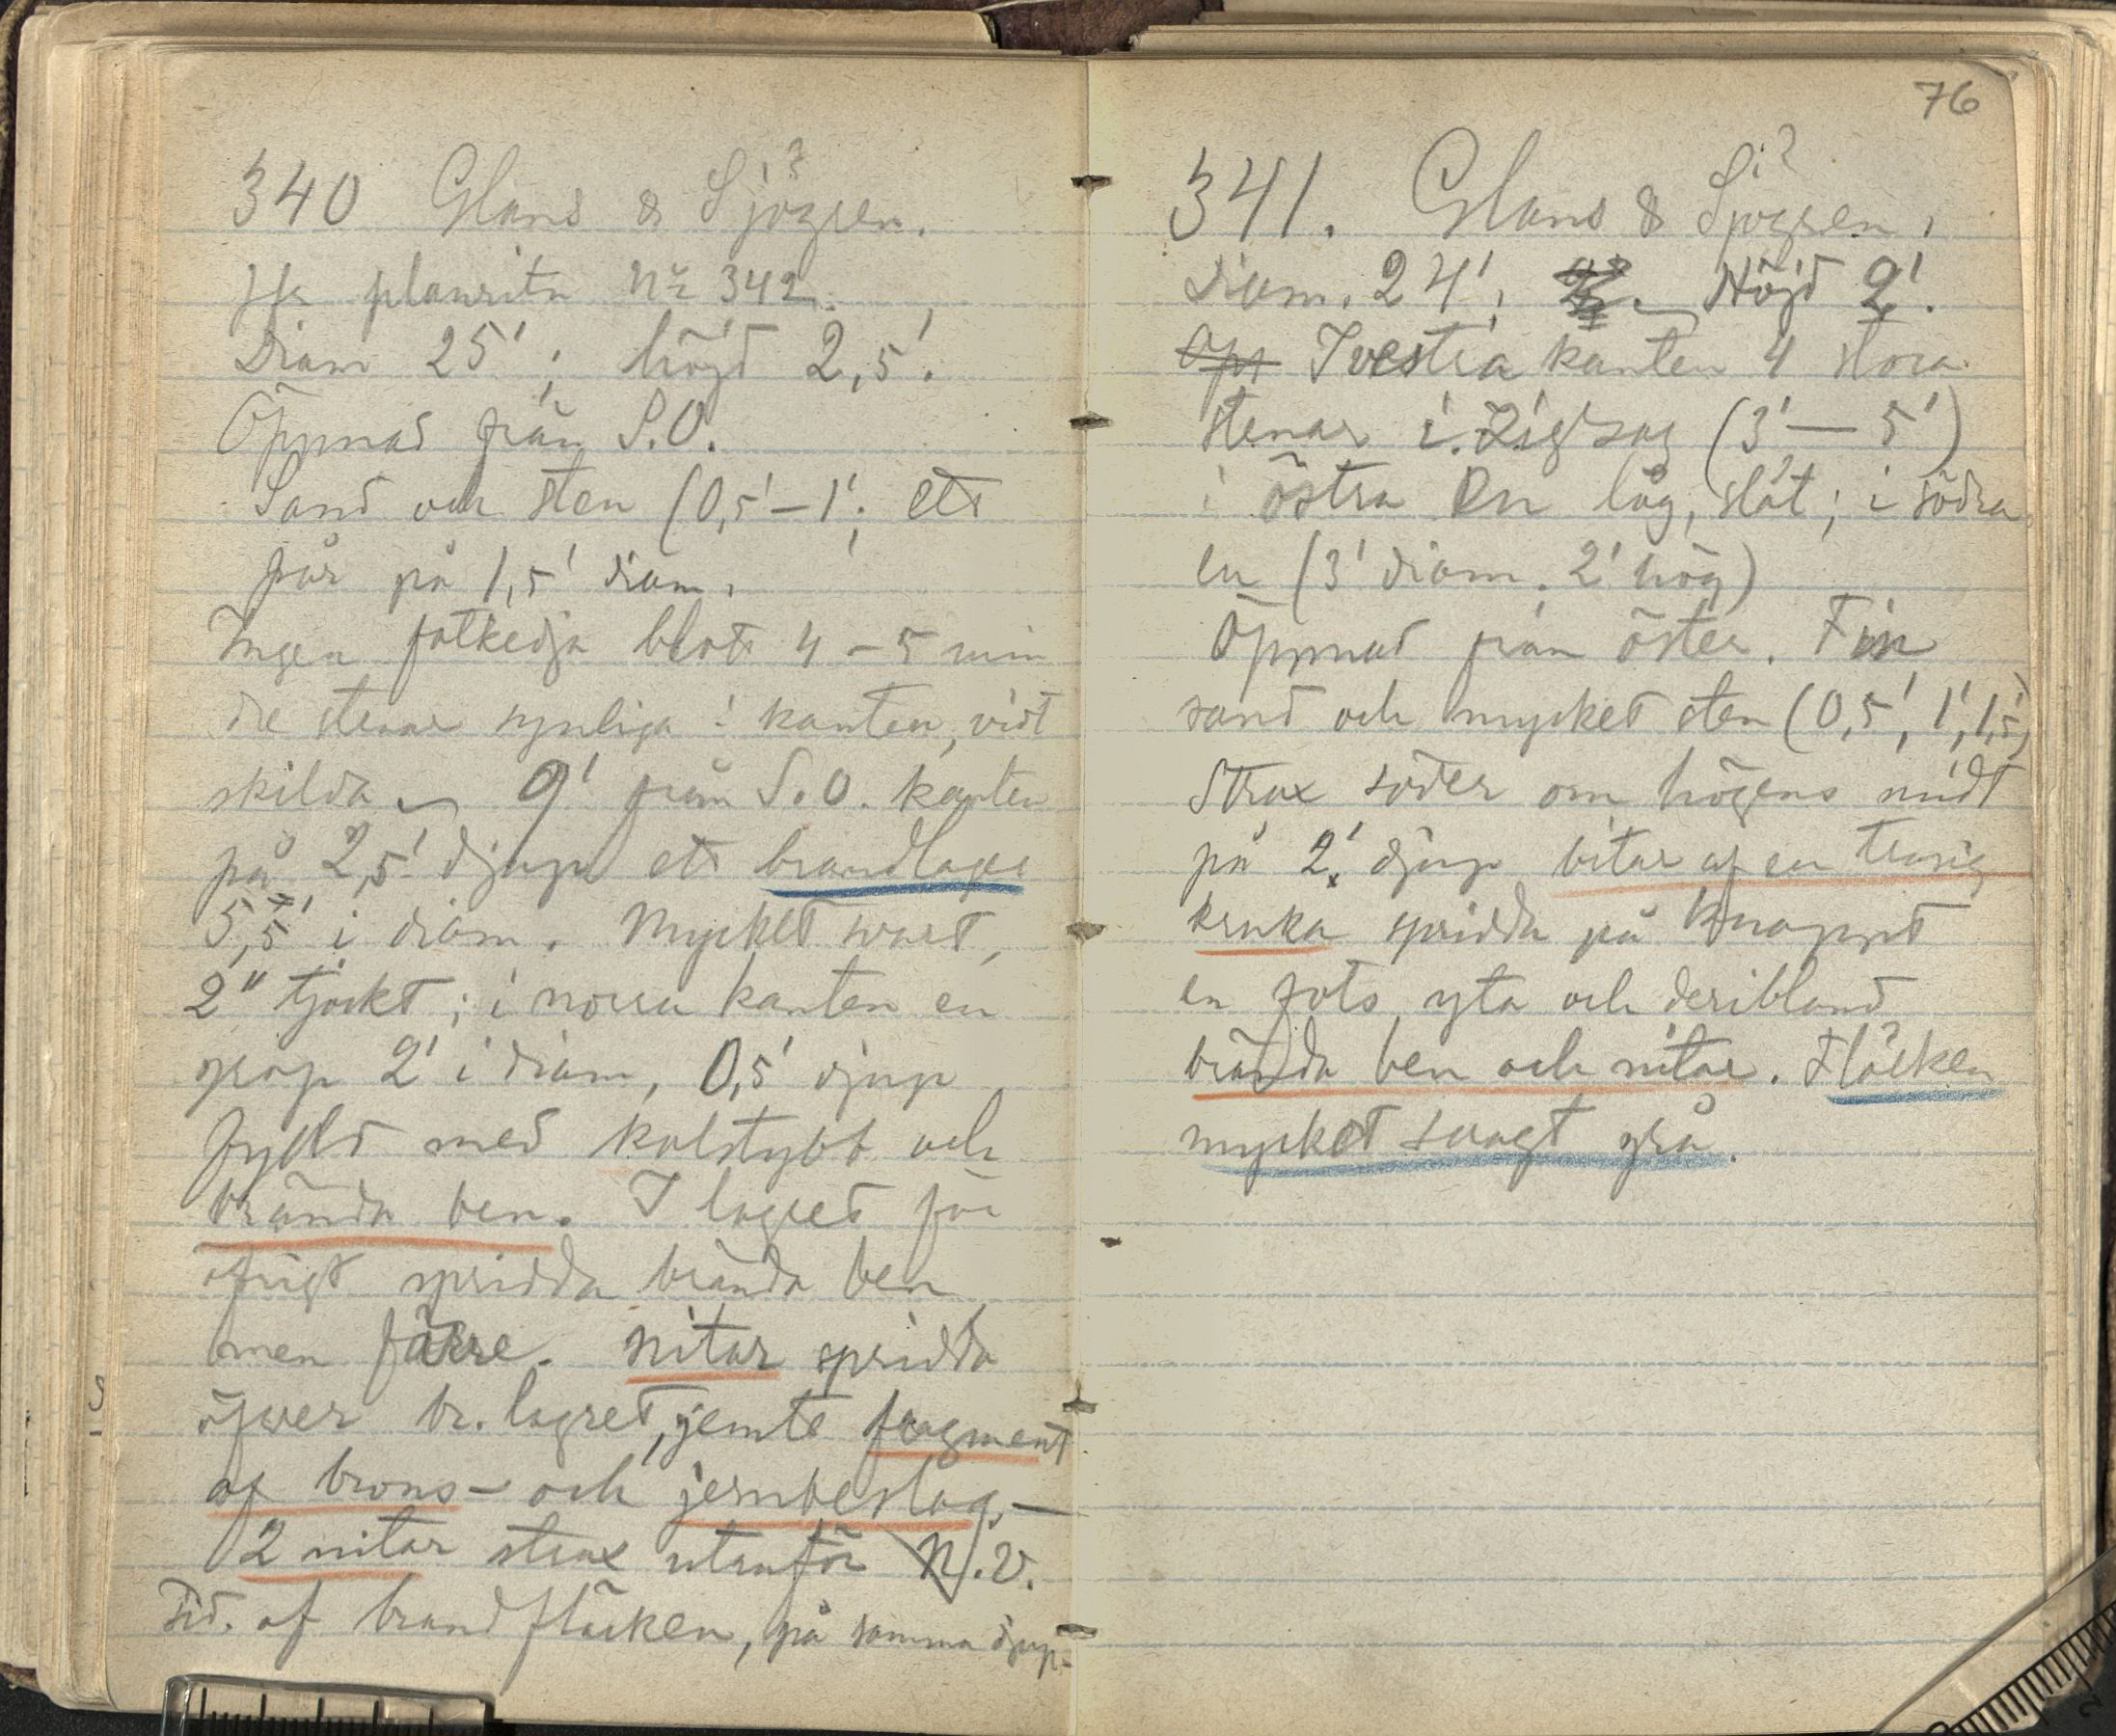 340 Glans & Sjögren.
Jfr planritn Nr 342.
Diam 25'; höjd 2,5'.
Öppnad från S.O.
Sand och sten (0,5'–1'; ett
par på 1,5' diam.
Ingen fotkedja blott 4–5 min
dre stenar synliga i kanten, vidt
skilda 9' från S.O. kanten
på 2,5' djup ett brandlager
5,5' i diam. Mycket svart,
2" tjockt; i norra kanten en
grop 2' i diam, 0,5' djup
fylld med kolstybb och
brända ben. I lagret för
öfrigt spridda brända ben
men färre. Nitar spridda
öfver br. lagret, jemte fragment
af brons- och jernbeslag,—
2 nitar strax utanför N.V.
sid. af brandfläcken, på samma djup.
76
341. Glans & Sjögren.
Diam. 24'. Höjd 2'.
Öpp I vestra kanten 4 stora
stenar i Zigzag (3'—5')
i östra en låg, slät; i södra
en (3' diam. 2' hög)
Öppnad från öster. Fin
sand och mycket sten (0,5', 1', 1,5')
Strax söder om högens midt
på 2' djup bitar af en trasig
kruka spridda på knappt
en fots yta och deribland
brända ben och nitar. Fläcken
mycket svagt grå.